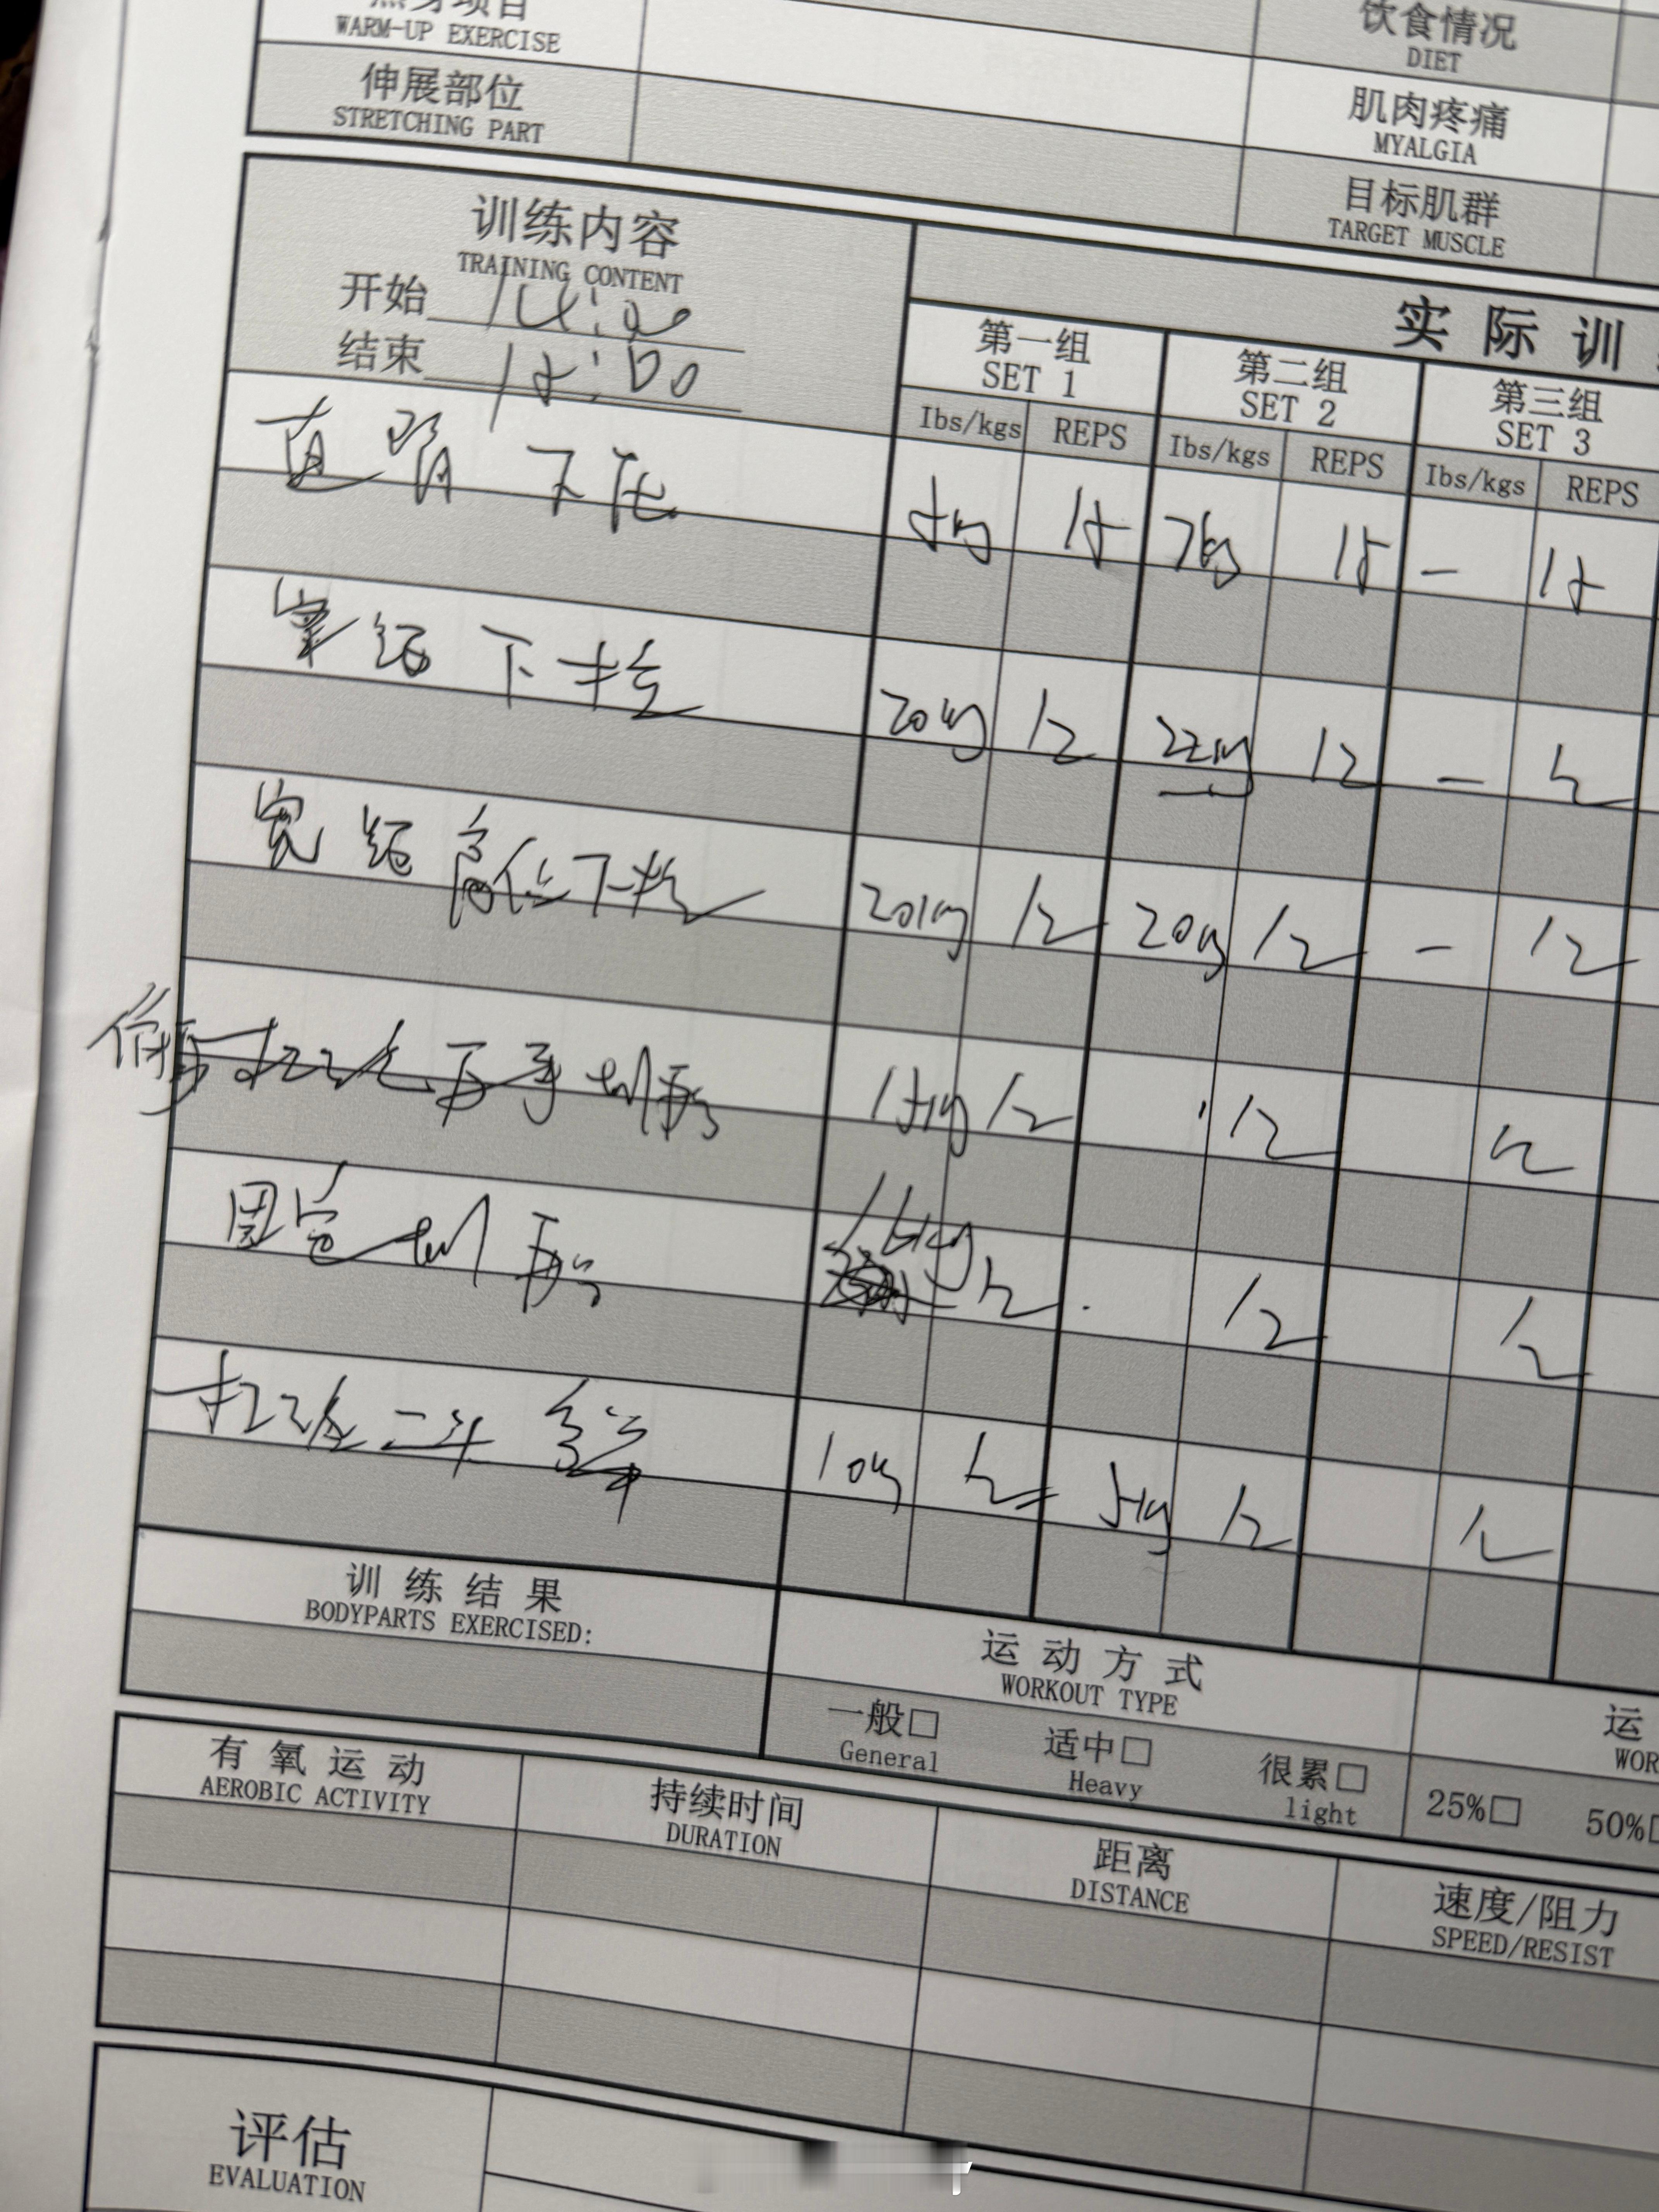 WARM-UP EXERCISE
饮食情况
DIET
伸展部位
STRETCHING PART
肌肉疼痛
MYALGIA
目标肌群
TARGET MUSCLE
训练内容
TRAINING CONTENT
开始 14:00
结束 15:00
实际训
第一组 第二组 第三组
SET 1 SET 2 SET 3
Ibs/kgs REPS Ibs/kgs REPS Ibs/kgs REPS
直臂下压 5kg 15 7kg 15 - 15
窄距下拉 20kg 12 12 - 12
宽距高位下拉 20kg 12 20kg 12 - 12
划船 15kg 12 12 12
固定划船 12 12 12
二头 10kg 12 5kg 12 12
训练结果
BODYPARTS EXERCISED:
运动方式
WORKOUT TYPE
一般□ 适中□ 很累□
General Heavy light
运
25%□ 50%
有氧运动
AEROBIC ACTIVITY
持续时间
DURATION
距离
DISTANCE
速度/阻力
SPEED/RESIST
评估
EVALUATION